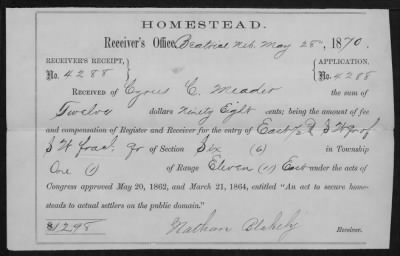 HOMESTEAD.
Receiver's Office, Beatrice Neb. May 28, 1870.
RECEIVER'S RECEIPT, No. 4288 APPLICATION, No. 4288
RECEIVED OF Cyrus C. Meader the sum of
Twelve dollars Ninety Eight cents; being the amount of fee
and compensation of Register and Receiver for the entry of East 1/2 of
S W frac. qr of Section Six (6) in Township
One (1) of Range Eleven (11) East under the acts of
Congress approved May 20, 1862, and March 21, 1864, entitled "An act to secure home-
steads to actual settlers on the public domain."
$12.98 Nathan Blakely Receiver.